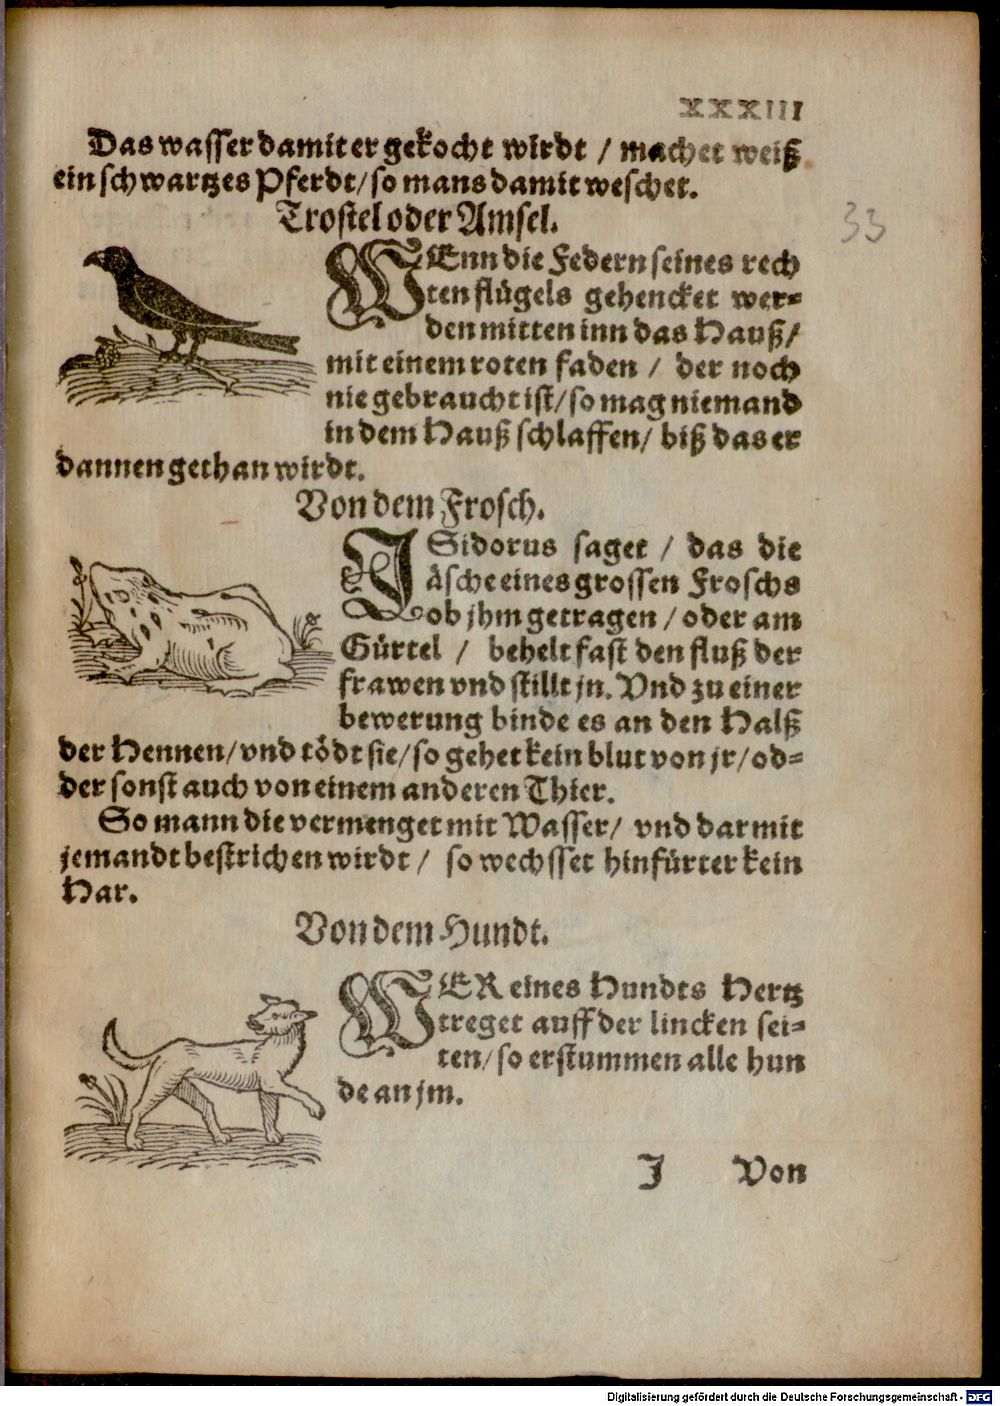 XXXIII
Das wasser damit er gekocht wirdt / machet weiß
ein schwartzes Pferdt/ so mans damit weschet.
Trostel oder Amsel.
33
WEnn die Federn seines rech
ten flügels gehencket wer=
den mitten inn das Hauß/
mit einem roten faden / der noch
nie gebraucht ist/ so mag niemand
in dem Hauß schlaffen/ biß das er
dannen gethan wirdt.
Von dem Frosch.
ISidorus saget / das die
äsche eines grossen Froschs
ob jhm getragen / oder am
Gürtel / behelt fast den fluß der
frawen vnd stillt jn. Vnd zu einer
bewerung binde es an den Halß
der Hennen/ vnd tödt sie/ so gehet kein blut von jr/ od=
der sonst auch von einem anderen Thier.
So mann die vermenget mit Wasser/ vnd darmit
jemandt bestrichen wirdt / so wechsset hinfürter kein
Har.
Von dem Hundt.
WER eines Hundts Hertz
treget auff der lincken sei=
ten/ so erstummen alle hun
de an jm.
J Von
Digitalisierung gefördert durch die Deutsche Forschungsgemeinschaft - DFG